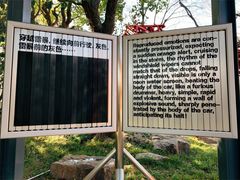 穿越雷暴，继续向前行驶，灰色，
雷暴前的灰色……
Reproduced emotions are con-
stantly pressurized, expecting
an eruption; alert, cruising
in the storm, the rhythm of the
windshield wipers cannot
match that of the drops, falling
straight down, visible is only a
rush water screen, beating the
body of the car, like a furious
drummer, heavy, simple, rapid
and violent, forming a wall of
explosive sound, sharply pene-
trated by the body of the car,
anticipating its halt!